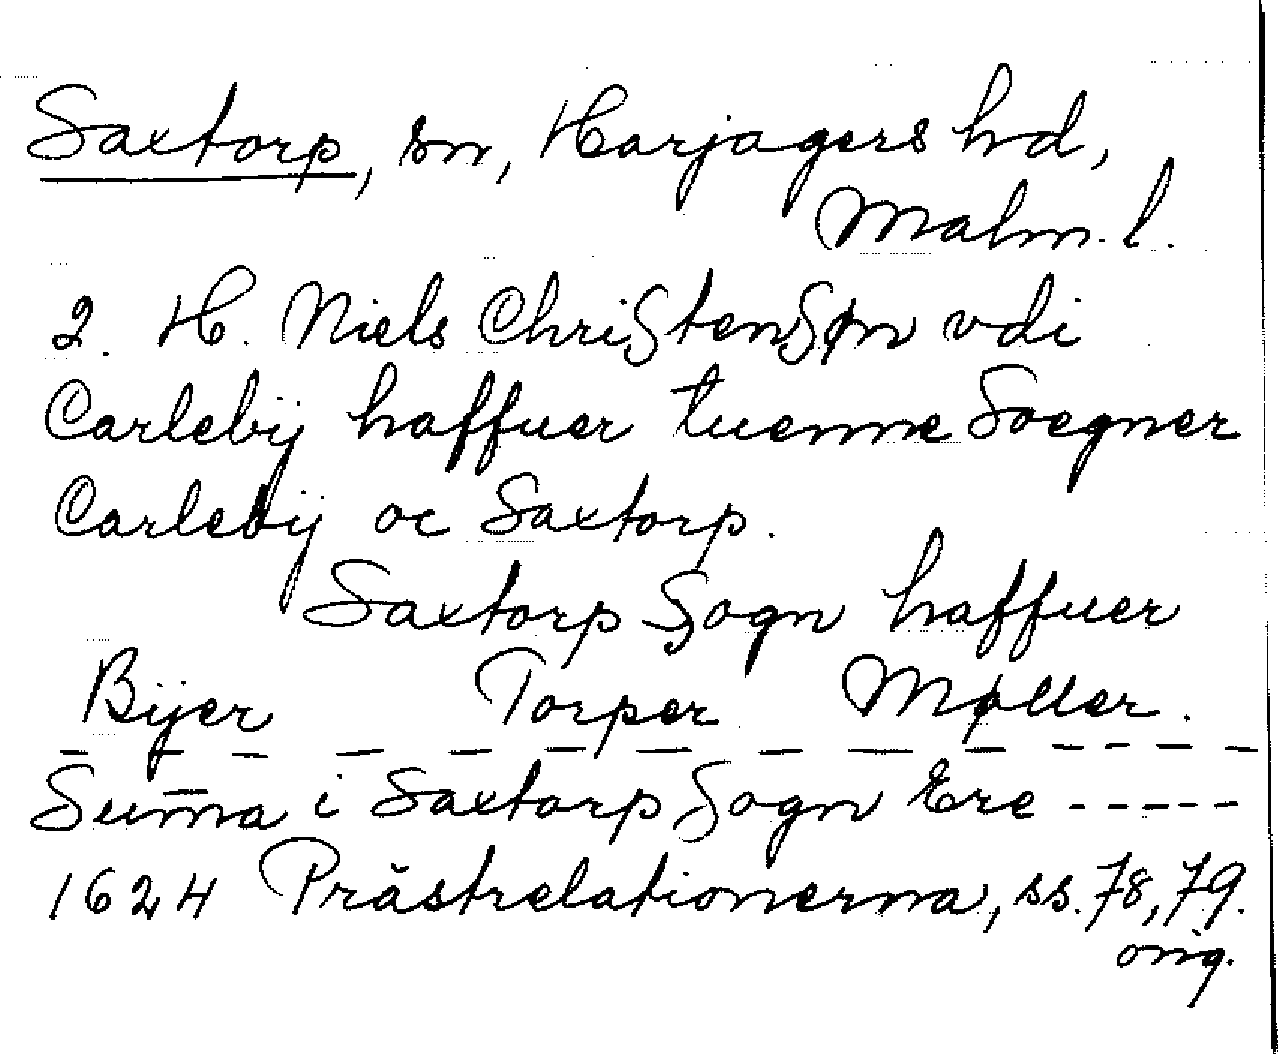 Saxtorp, sn, Harjagers hd,
Malm. l.
2. H. Niels Christensøn vdi
Carlebÿ haffuer tuenne Soegner
Carlebÿ oc Saxtorp.
Saxtorp Sogn haffuer
Bÿer Torper Møller.
— — — — — — — — — — - - - — —
Sum̄a i Saxtorp Sogn Ere -----
1624 Prästrelationerna, ss. 78, 79.
orig.